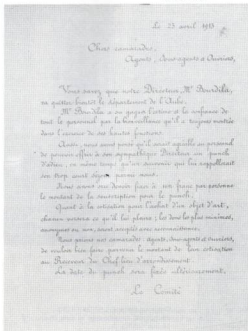 Le 23 avril 1913
Chers camarades,
Agents, Sous-agents et Ouvriers,
Vous savez que notre Directeur, Mr Bendile,
va quitter bientôt le département de l'Aube.
Mr Bendile a su gagner l'estime et la confiance de
tout le personnel par la bienveillance qu'il a toujours montrée
dans l'exercice de ses hautes fonctions.
Aussi, nous avons pensé qu'il serait agréable au personnel
de pouvoir offrir à son sympathique Directeur un punch
d'adieu, en même temps qu'un souvenir qui lui rappellerait
son trop court séjour parmi nous.
Nous avons cru devoir fixer à six francs par personne
le montant de la souscription pour le punch.
Quant à la cotisation pour l'achat d'un objet d'art,
chacun versera ce qu'il lui plaira; les dons les plus minimes,
anonymes ou non, seront acceptés avec reconnaissance.
Nous prions nos camarades: agents, sous-agents et ouvriers,
de vouloir bien faire parvenir le montant de leur cotisation
au Receveur du Chef-lieu d'arrondissement.
La date du punch sera fixée ultérieurement.
Le Comité